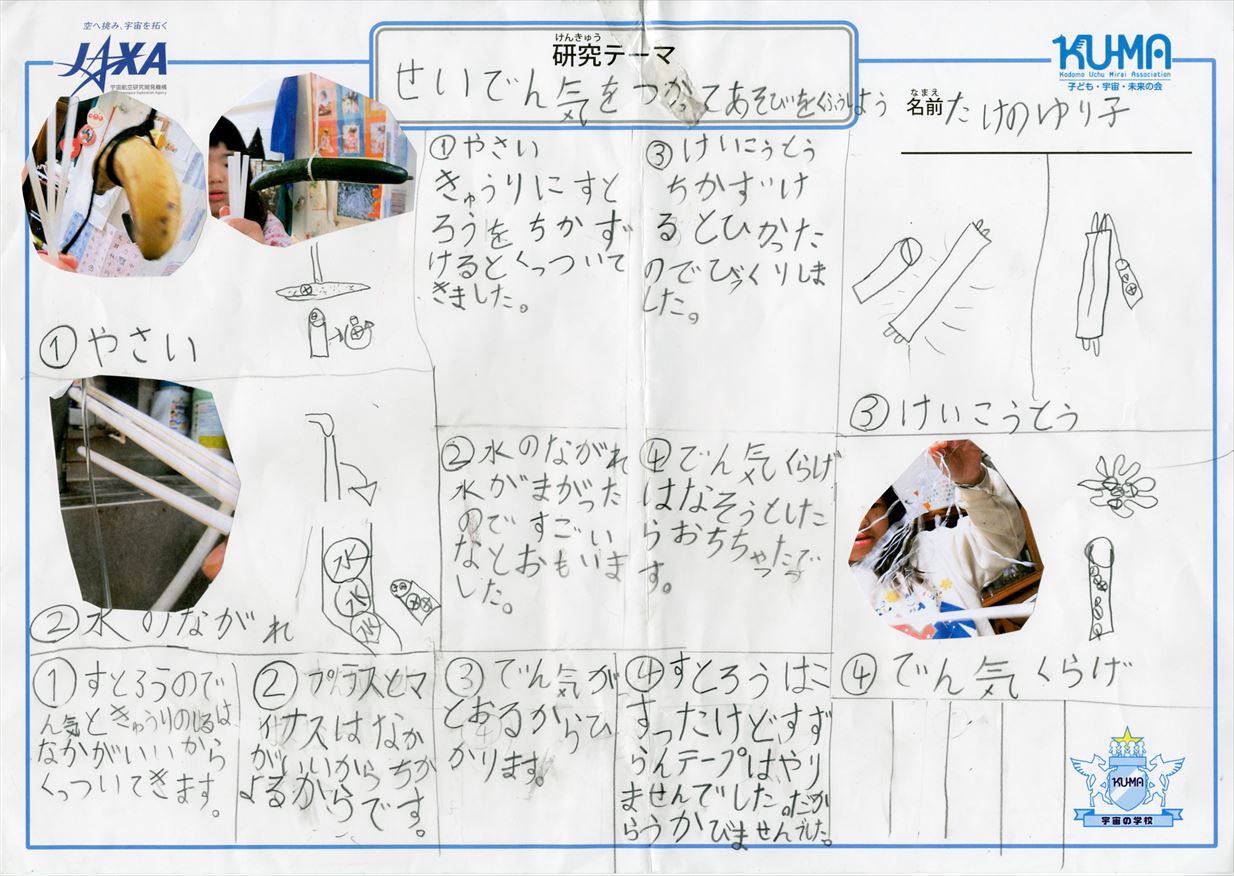 空へ挑み、宇宙を拓く
JAXA
宇宙航空研究開発機構
Japan Aerospace Exploration Agency
けんきゅう
研究テーマ
せいでん気をつかってあそびをくふうしよう
KU-MA
Kodomo Uchu Mirai Association
子ども・宇宙・未来の会
なまえ
名前
たけのゆり子
①やさい
きゅうりにすと
ろうをちかず
けるとくっついて
きました。
③けいこうとう
ちかずけ
るとひかった
のでびっくりしま
した。
①やさい
③けいこうとう
②水のながれ
水がまがった
のですごい
なとおもいま
した。
④でん気くらげ
はなそうとした
らおちちゃったで
す。
水
水
水
②水のながれ
④でん気くらげ
①すとろうので
ん気ときゅうりのしるは
なかがいいから
くっついてきます。
②プラスとマ
イナスはなか
がいいからちか
よるからです。
③でん気が
とおるからひ
かります。
④すとろうはこ
すったけどすず
らんテープはやり
ませんでした。だか
らうかびませんでした。
KU-MA
宇宙の学校